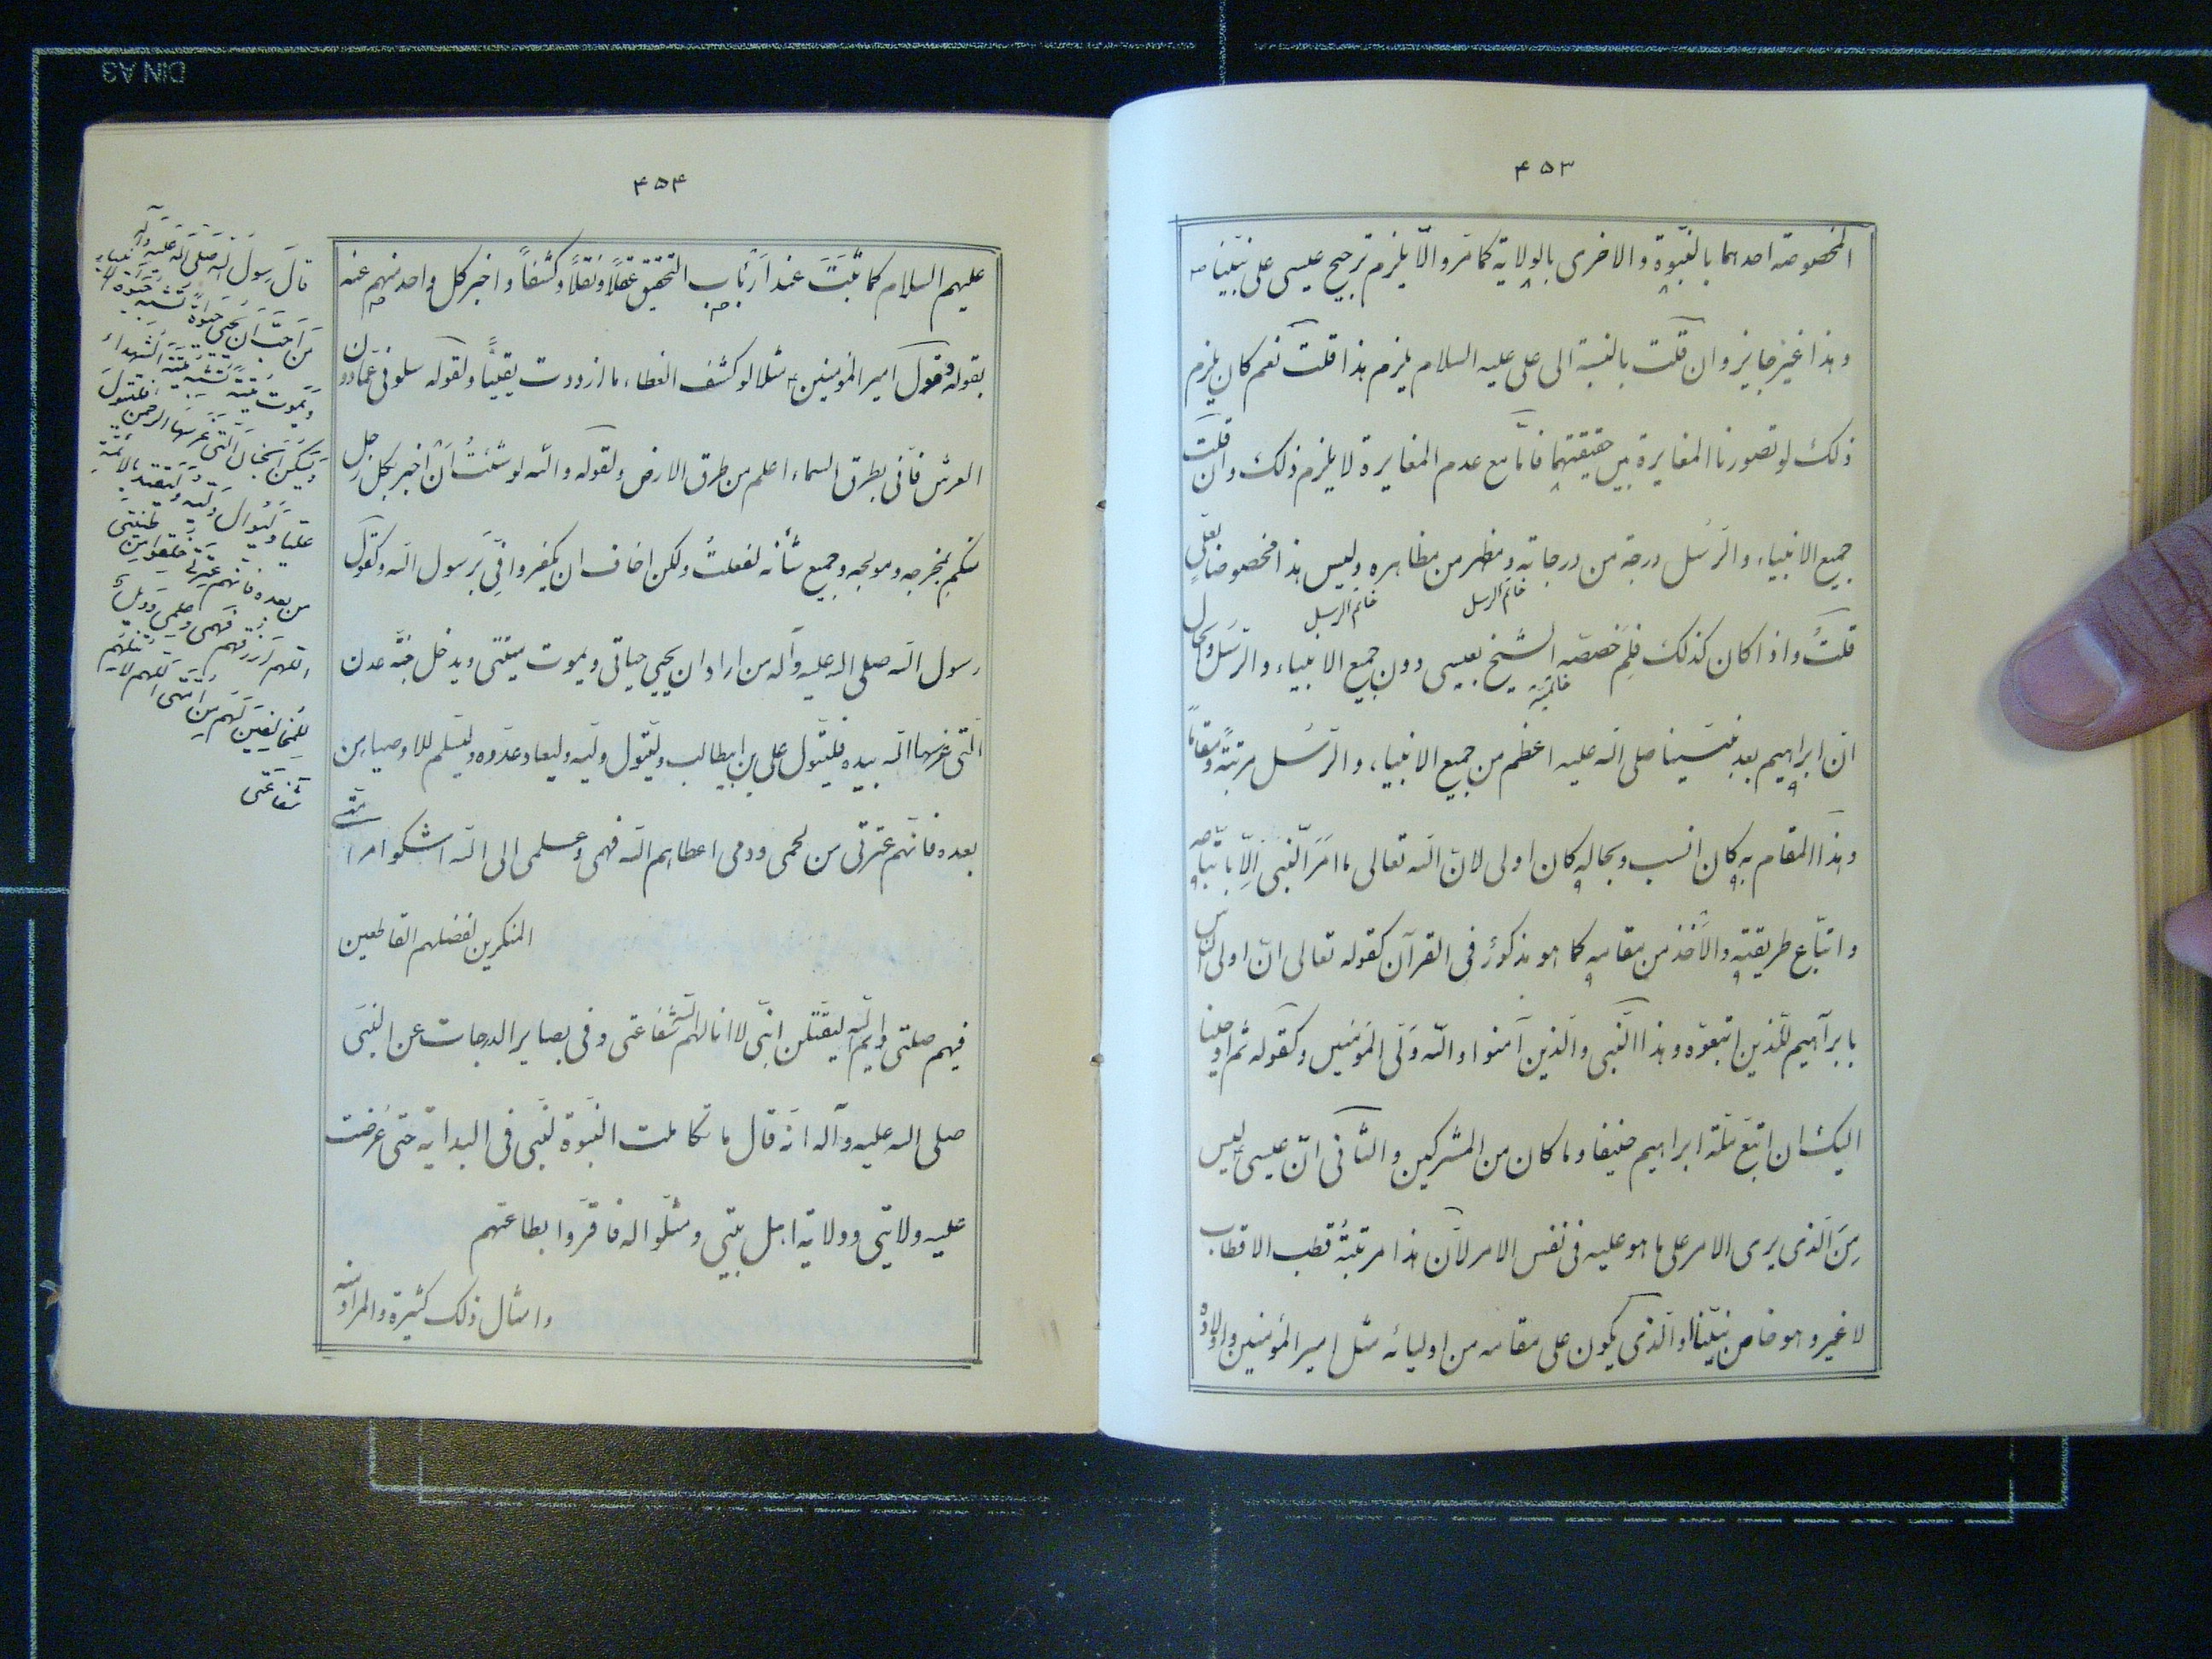 ۴۵۳
المخصوصة احدهما بالنبّوة والاخرى بالولاية كما مَرّ والّا يلزم ترجيح عيسى على نبيّنا ص
وهذا غير جايز وان قلت بالنسبة الى على عليه السلام يلزم هذا قلت نعم كان يلزم
ذلك لو تصورنا المغايرة بين حقيقتهما فامّا مع عدم المغايرة لا يلزم ذلك وان قلت
جميع الانبياء والرّسُل درجة من درجاته ومظهر من مظاهره وليس هذا مخصوصًا بعلى
خاتم الرسل خاتم الرسل
قلتُ واذا كان كذلك فلِمَ خصّصَه الشيخ بعيسى دون جميع الانبياء والرّسل والحال
خاتمية
انّ ابراهيم بعد نبيّنا صلى الله عليه اعظم من جميع الانبياء، والرّسُل مرتبةً ومقامًا
وهذا المقام به كان انسب وبحاله كان اولى لانّ الله تعالى ما امَرَ النّبى الّا باتّباعه
واتّباع طريقته والأخذ من مقامه كما هو مذكورٌ فى القرآن كقوله تعالى انّ اولى الناس
بابرآهيم للّذين اتبعوه وهذا النّبى والّذين آمنوا والله وَلّى المؤمنين وكقوله ثم اوحينا
اليك ان اتّبع ملّة ابراهيم حنيفا وما كان من المشركين والثّانى انّ عيسى ليس
مِنَ الّذى يرى الامر على ما هو عليه فى نفس الامر لأن هذا مرتبةُ قطب الاقطاب
لا غير وهو خاص بنبيّنا او الّذى يكون على مقامه من اوليائه مثل امير المؤمنين واولاده
۴۵۴
عليهم السلام كما ثَبَتَ عند اَرْبَاب التحقيق عقلًا ونقلًا وكشفًا واخبر كل واحد منهم عنه
بقوله وقول امير المؤمنين مثلا لو كشف الغطاء ما ازددت يقينًا ولقوله سلونى عمّا دون
العرش فانّى بطرق السماء اعلم من طرق الارض ولقوله والله لو شئتُ اَنْ اُخبر كل رجل
منكم بمخرجه ومولجه وجميع شأنه لفعلتُ ولكن اخاف ان يكفروا فِىّ بَرسول الله وكقول
رسول الله صلى الله عليه وآله من اراد ان يحيى حياتى ويموت ميتتى ويدخل جنّة عدن
الّتى غرسها الله بيده فليتولّ على بن ابيطالب وليتولّ وليّه وليعاد عدّوه وليسلّم للاوصياء من
بعده فانّهم عترتى من لحمى ودمى اعطاهم الله فهمى وعلمى الى الله اشكو امر امّتى
المنكرين لفضلهم القاطعين
فيهم صلتى وايم الله ليقتلن ابنى لا انالهم الله شفاعتى وفى بصاير الدرجات عن النّبى
صلى الله عليه وآله انّه قال ما تكاملت النبّوة لنّبى فى البداية حتى عُرضت
عليه ولايتى وولاية اهل بيتى ومثلّوا له فاقرّوا بطاعتهم
وامثال ذلك كثيرة والمراد منه
قالَ رسولَ الله صلى الله عليه وآله
مَن اَحبَّ اَن يَحيى حَيٰوةً تشبه حَيٰوة الانبياء
وَيَموت ميتةً تُشبه ميتَةَ الشهداء
وَيَسكن الجنانَ الّتى غَرسَها الرّحمن فليتولّ
عليّا وَليُوال وَليّه وَليَقتد بالائمّة
من بعده فانّهم عترتى خلقوا مِن طينتى
اللهم ارزُقهم فَهمى وعلمى وَويلٌ
للمُخالِفينَ لهم مِن امّتى اللهم لا تنلهم
شفاعتى